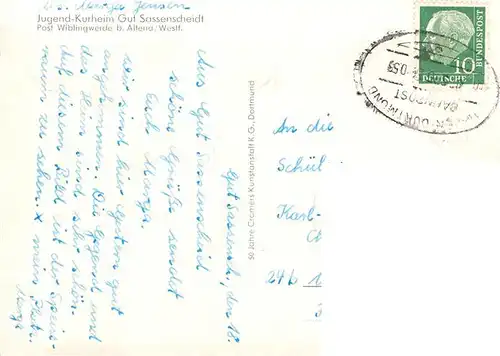 Abs. Marga Jensen
Jugend-Kurheim Gut Sassenscheidt
Post Wiblingwerde b. Altena/Westf.
Gut Sassensch., den 18.
Aus Gut Sassenscheid
schöne Grüße sendet
Euch Marga.
Wir sind hier gestern gut
angekommen. Die Gegend und
das Heim sind sehr schön.
Auf diesem Bild ist der Speise-
raum zu sehen. x mein Platz.
Marga
50 Jahre Cramers Kunstanstalt K.G., Dortmund
An die
Schül
Karl-
24b
DEUTSCHE
BUNDESPOST
10
DORTMUND
BAHNPOST